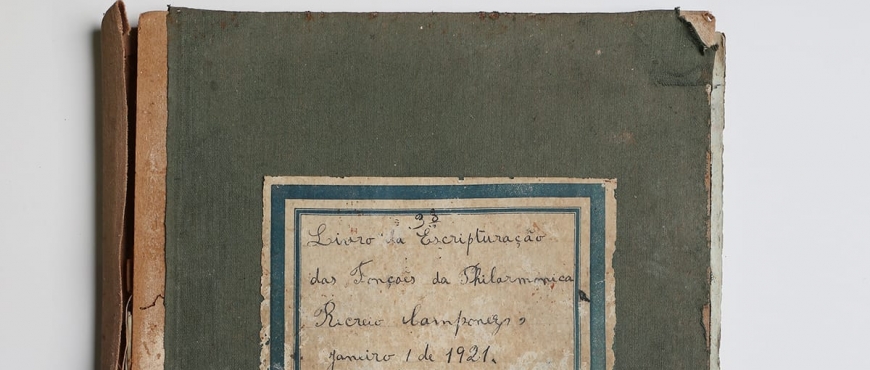 3º
Livro da Escripturação
das Fonçoẽs da Philarmonica
Recreio Camponez,
Janeiro 1 de 1921.